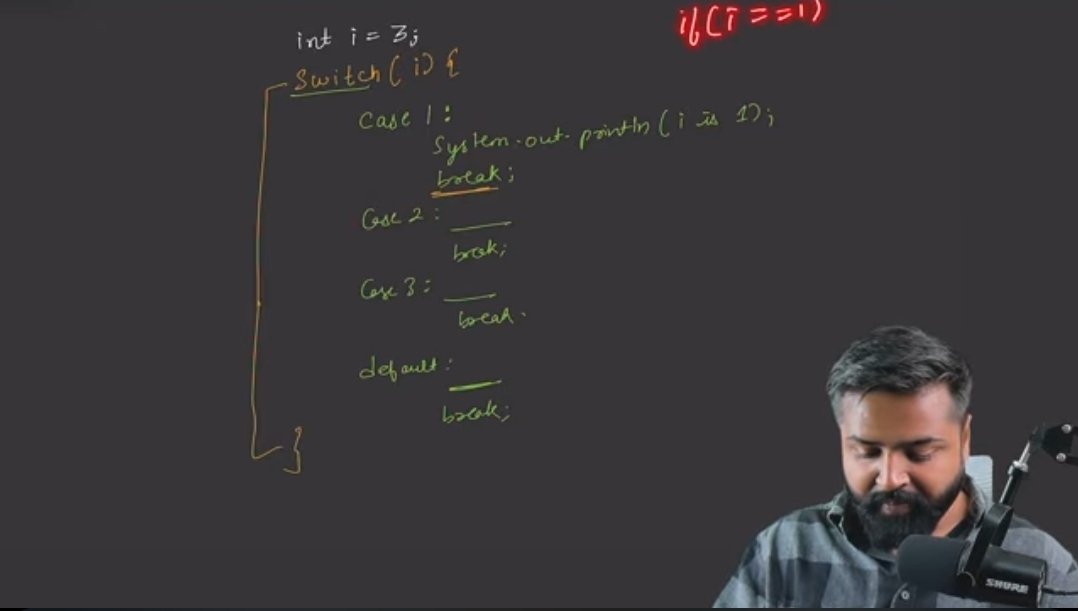 int i = 3;
if(i==1)
Switch(i){
Case 1:
System.out.println(i is 1);
break;
Case 2:
break;
Case 3:
break.
default:
break;
}
SHURE